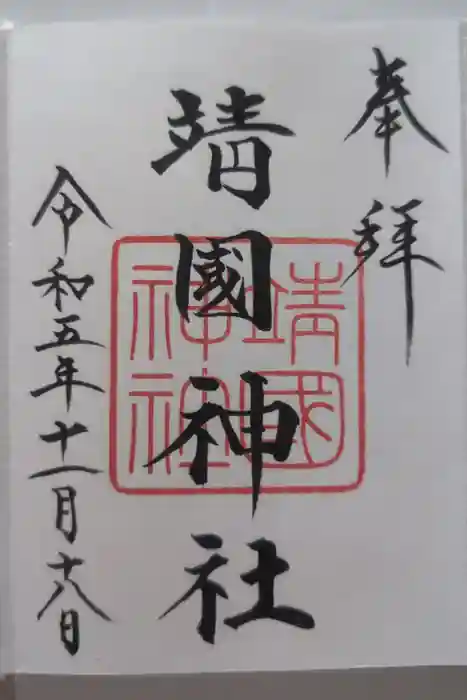 奉拝
靖國神社
靖國神社
令和五年十一月十八日